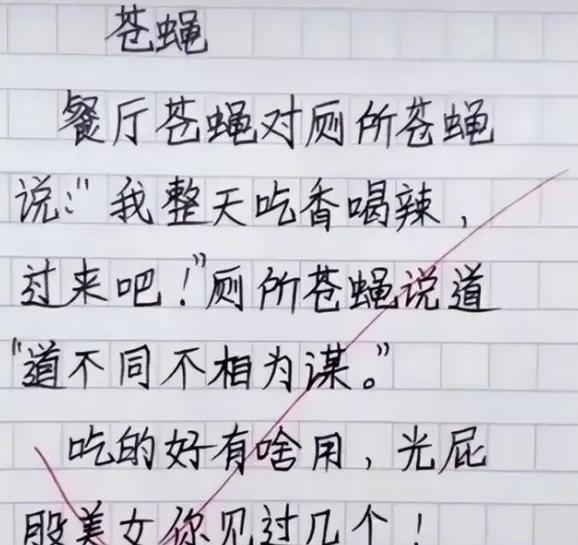 苍蝇
餐厅苍蝇对厕所苍蝇
说:"我整天吃香喝辣,
过来吧!"厕所苍蝇说道
"道不同不相为谋。"
吃的好有啥用,光屁
股美女你见过几个!